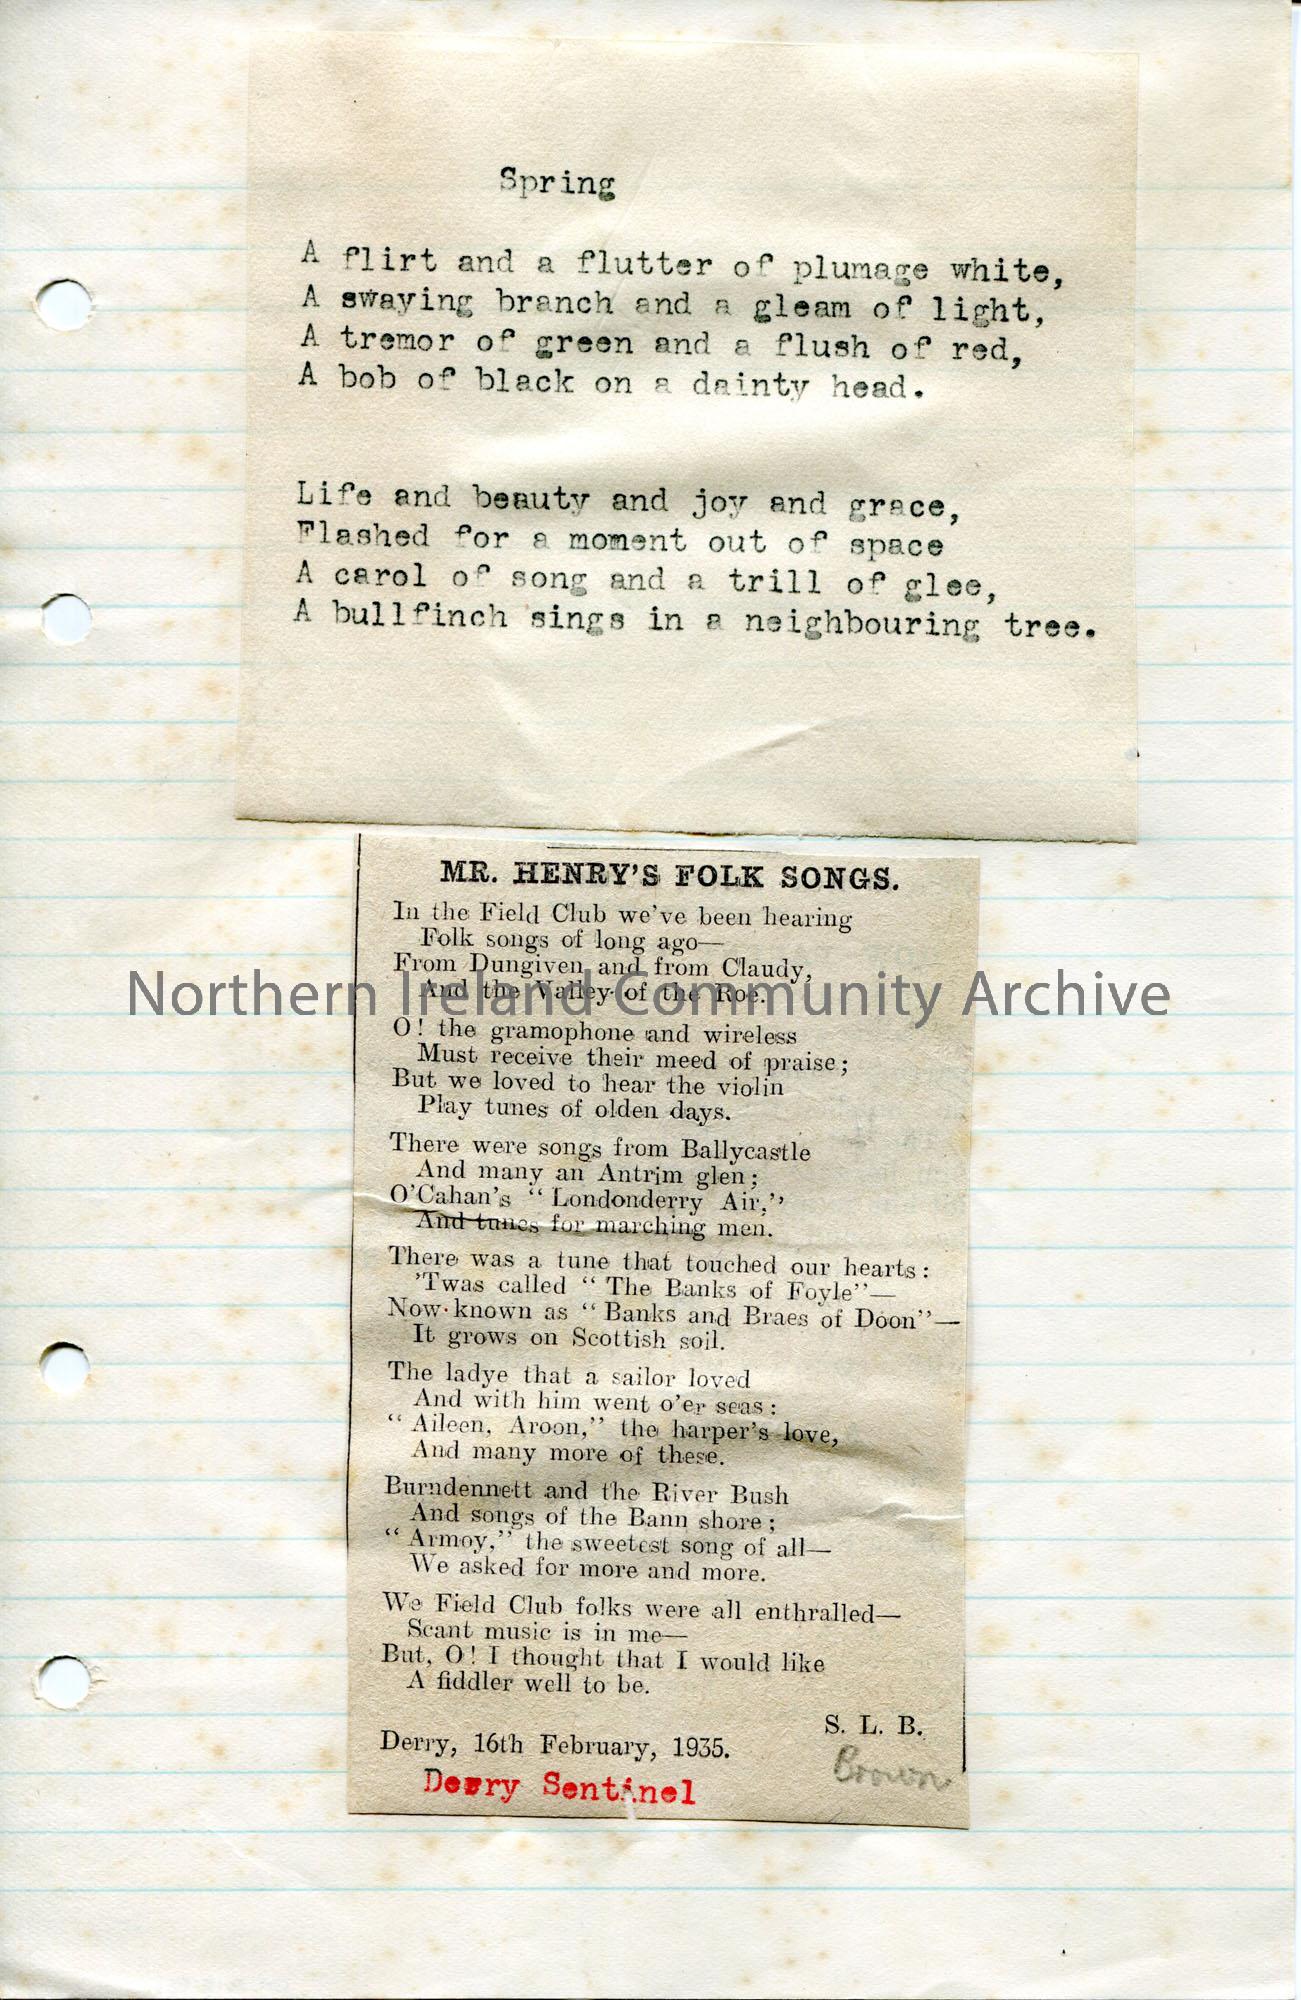 Spring
A flirt and a flutter of plumage white,
A swaying branch and a gleam of light,
A tremor of green and a flush of red,
A bob of black on a dainty head.
Life and beauty and joy and grace,
Flashed for a moment out of space
A carol of song and a trill of glee,
A bullfinch sings in a neighbouring tree.
MR. HENRY'S FOLK SONGS.
In the Field Club we've been hearing
Folk songs of long ago—
From Dungiven and from Claudy,
And the Valley of the Roe.
Northern Ireland Community Archive
O! the gramophone and wireless
Must receive their meed of praise;
But we loved to hear the violin
Play tunes of olden days.
There were songs from Ballycastle
And many an Antrim glen;
O'Cahan's "Londonderry Air,"
And tunes for marching men.
There was a tune that touched our hearts:
'Twas called "The Banks of Foyle"—
Now known as "Banks and Braes of Doon"—
It grows on Scottish soil.
The ladye that a sailor loved
And with him went o'er seas:
"Aileen, Aroon," the harper's love,
And many more of these.
Burndennett and the River Bush
And songs of the Bann shore;
"Armoy," the sweetest song of all—
We asked for more and more.
We Field Club folks were all enthralled—
Scant music is in me—
But, O! I thought that I would like
A fiddler well to be.
S. L. B.
Derry, 16th February, 1935.
Brown
Derry Sentinel